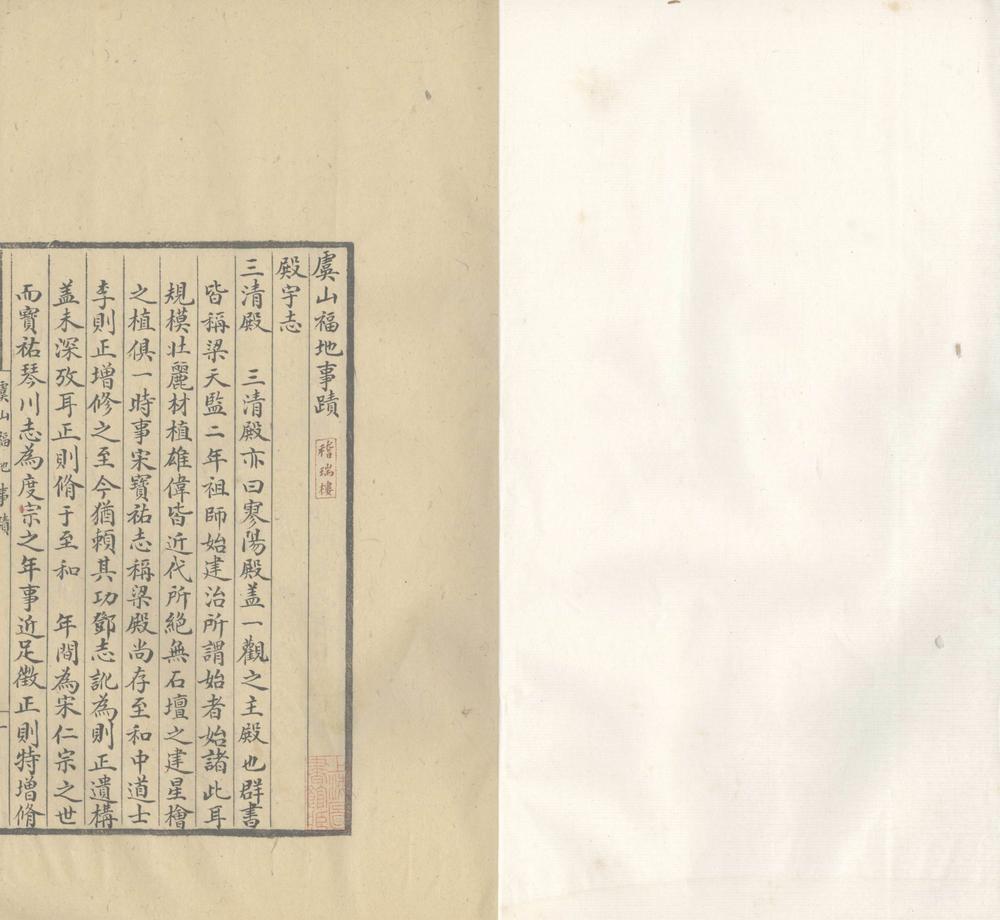 虞山福地事蹟
稽瑞樓
殿宇志
三清殿　三清殿亦曰寥陽殿盖一觀之主殿也群書
皆稱梁天監二年祖師始建治所謂始者始諸此耳
規模壯麗材植雄偉皆近代所絕無石壇之建星檜
之植俱一時事宋寶祐志稱梁殿尚存至和中道士
李則正增修之至今猶頼其功鄧志訛為則正遺構
盖未深攷耳正則脩于至和　年間為宋仁宗之世
而寶祐琴川志為度宗之年事近足徵正則特增脩
虞山福地事蹟
一